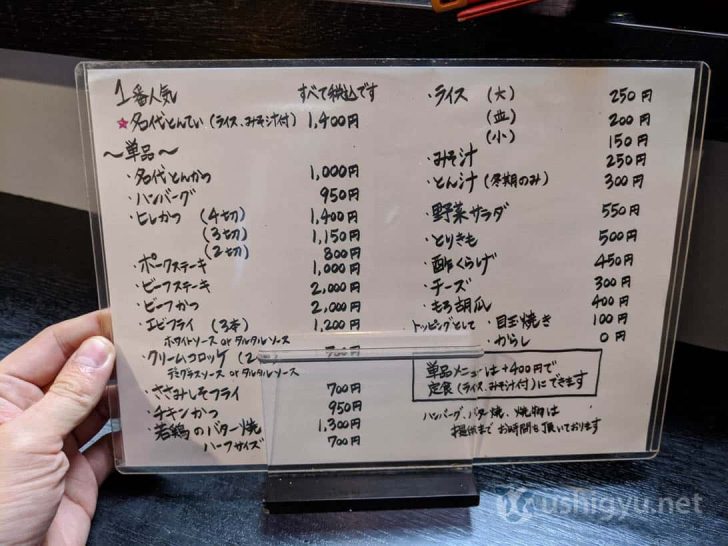 1番人気 すべて税込です
★名代とんてい(ライス、みそ汁付) 1,400円
～単品～
・名代とんかつ 1,000円
・ハンバーグ 950円
・ヒレかつ (4切) 1,400円
(3切) 1,150円
(2切) 800円
・ポークステーキ 1,000円
・ビーフステーキ 2,000円
・ビーフかつ 2,000円
・エビフライ (3本) 1,200円
ホワイトソース or タルタルソース
・クリームコロッケ (2
デミグラスソース or タルタルソース
・ささみしそフライ 700円
・チキンかつ 950円
・若鶏のバター焼 1,300円
ハーフサイズ 700円
・ライス (大) 250円
(並) 200円
(小) 150円
・みそ汁 250円
・とん汁(冬期のみ) 300円
・野菜サラダ 550円
・とりきも 500円
・酢くらげ 450円
・チーズ 300円
・もろ胡瓜 400円
トッピングとして ・目玉焼き 100円
・からし 0円
単品メニューは+400円で
定食(ライス、みそ汁付)にできます
ハンバーグ、バター焼、焼物は
提供まで お時間を頂いております
ushigyu.net